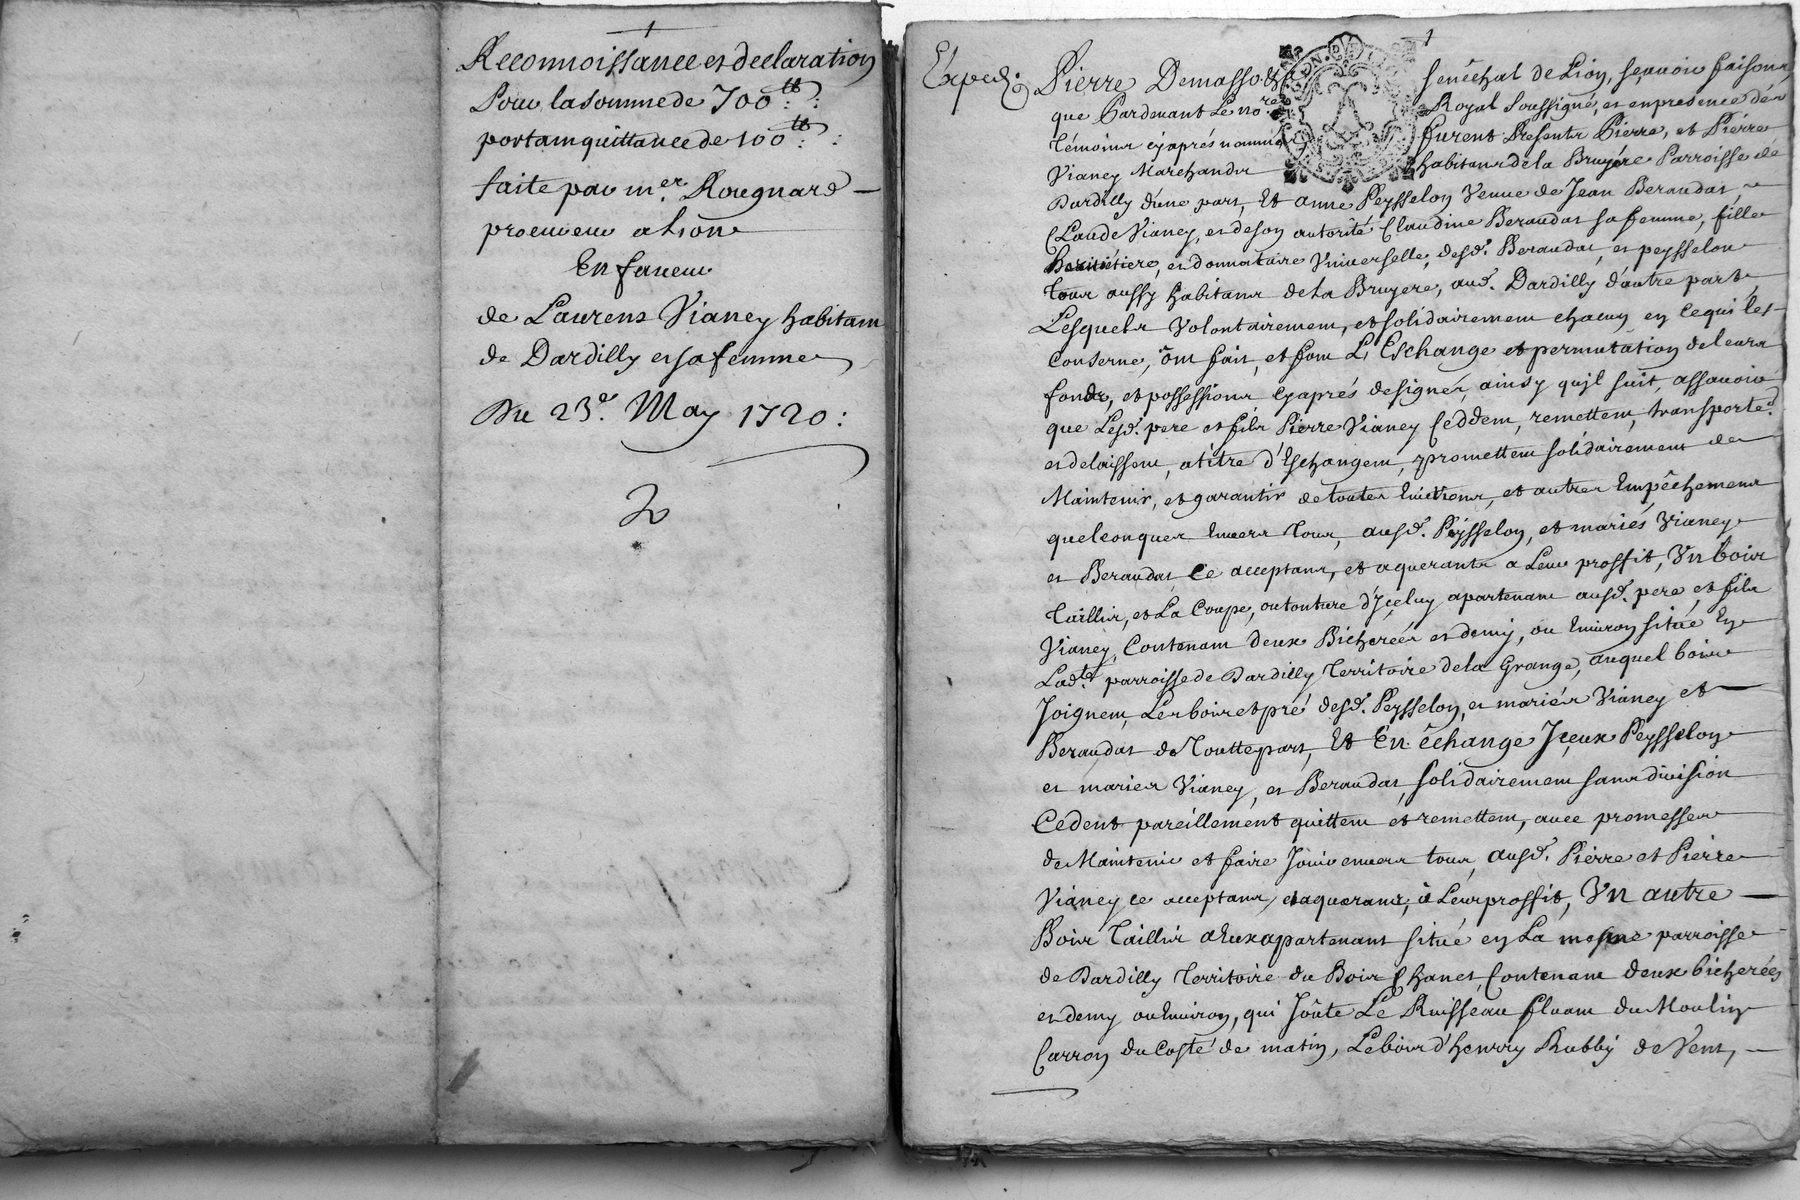 1
Reconnoissance et declaration
Pour la somme de 700tt:
portant quittance de 100tt:
faite par mer. Rougnard
procureur a Lion
En faveur
de Laurens Vianey habitant
de Dardilly et sa femme
Du 23e. May 1720:
2
1
Exped.
Pierre Demasso &a Senéchal de Lion, sçavoir faisons,
que Pardevant Le nore Royal Soussigné, et en presence des
Témoins cÿaprés nommés furent Presents Pierre, et Pierre
Vianey Marchands habitans de la Bruyére Parroisse de
Dardilly d'une part, Et anne Peysselon Veuve de Jean Beraudat,
Claude Vianey, et de son autorité Claudine Beraudat sa femme, fille
heritiere, et donnataire Vniverselle, desd. Beraudat, et peysselon
tous aussy habitans de la Bruyere, aud. Dardilly d'autre part,
Lesquels Volontairement, et solidairement chacun en ce qui les
Conserne, ônt fait, et font L'Eschange et permutation de leurs
fonds, et possessions cyaprés designés, ainsy qu'jl suit, assavoir
que Lesd. pere et fils Pierre Vianey Ceddent, remettent, transportent
et delaissent, a titre d'Eschangent, promettent solidairement de
Maintenir, et garantir de toutes Euictions, et autres Empêchements
quelconques Envers tous, ausd. Peÿsselon, et mariés Vianey
et Beraudat Ce acceptans, et aquerants a Leur proffit, Vn bois
Taillis, et La Coupe, ou tonture d'Jçeluy apartenant ausd. pere, et fils
Vianey, Contenant deux Bicherées et demy, ou Environ situé En
Lad.te parroisse de Dardilly Territoire de la Grange, auquel bois
Joignent Les bois et pré desd. Peysselon, et mariés Vianey et
Beraudat de Toutte part, Et En échange Jçeux Peysselon
et mariés Vianey, et Beraudat solidairement sans division
Cedent pareillement quittent et remettent, avec promesses
de Maintenir et faire Joüir envers tous, ausd. Pierre et Pierre
Vianey ce acceptans, et aquerans, à Leur proffit, Vn autre
Bois Taillis a Eux apartenant situé en La mesme parroisse
de Dardilly Territoire du Bois Chanet, Contenant deux bicherées
et demy ou Environ, qui Joûte Le Ruisseau fluant du Moulin
Carron du Costé de matin, Le bois d'henrry Rubby de Vent,